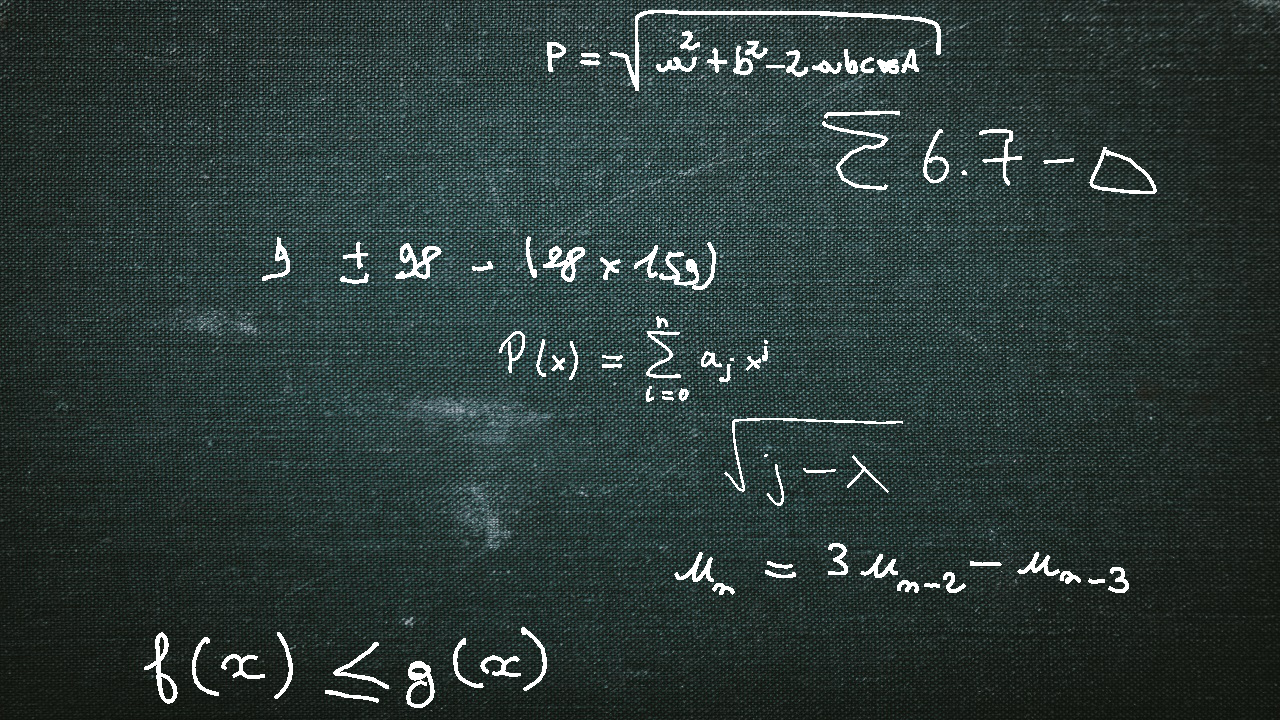 P = √(a² + b² − 2abcosA)
∑ 6.7 − Δ
9 ± 98 − (28 × 159)
P(x) = ∑ⁿᵢ₌₀ aⱼ xʲ
√(j − λ)
uₙ = 3uₙ₋₂ − uₙ₋₃
f(x) ≤ g(x)